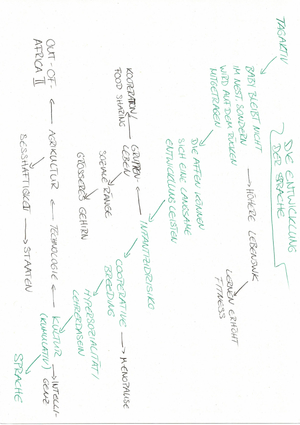 DIE ENTWICKLUNG
DER SPRACHE
TAGAKTIV
BABY BLEIBT NICHT
IM NEST, SONDERN
WIRD AUF DEM RÜCKEN
MITGETRAGEN
HÖHERE LEBENSWK
LERNEN ERHÖHT
FITNESS
DIE AFFEN KÖNNEN
SICH EINE LANGSAME
ENTWICKLUNG LEISTEN
INFANTIZIDRISIKO
GRUPPEN-
LEBEN
KOOPERATION/
FOOD SHARING
SOZIALE RÄNGE
GRÖSSERES GEHIRN
COOPERATIVE
BREEDING
MENOPAUSE
HYPERSOZIALITÄT/
LEHRERDASEIN
KULTUR
(KUMULATIV)
INTELLI-
GENZ
SPRACHE
TECHNOLOGIE
AGRIKULTUR
OUT-OF-
AFRICA II
SESSHAFTIGKEIT
STAATEN